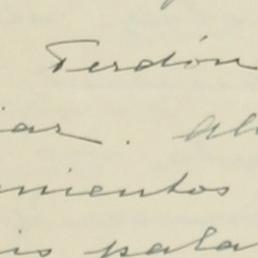 Perdón
iar. Ah
mientos
is pala